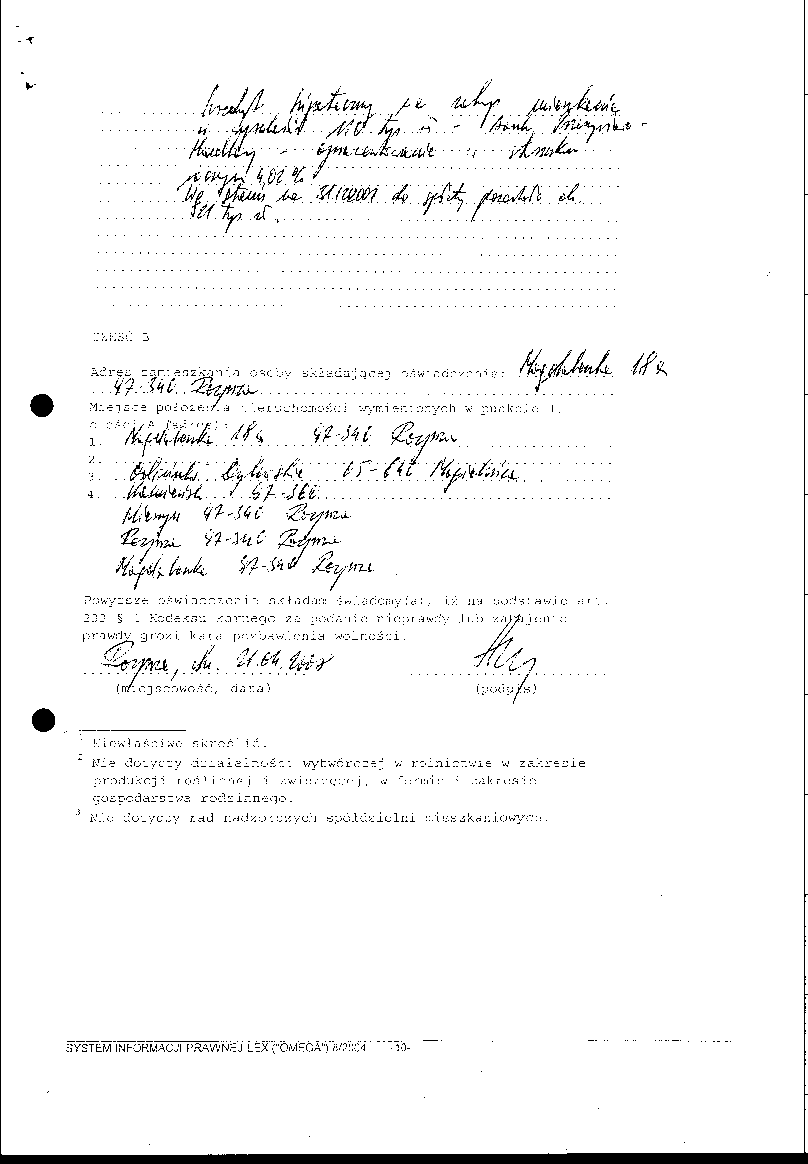 kredyt hipoteczny na zakup mieszkania
w wysokości 110 tyś zł - Bank
Handlowy - oprocentowanie w stosunku
rocznym 4,02 %
Wg stanu na do spłaty pozostało ok.
tyś zł.
CZĘŚĆ B
Adres zamieszkania osoby składającej oświadczenie: Magdalenka 18a
97-340 Rozprza
Miejsce położenia nieruchomości wymienionych w punkcie II
części A (adres):
1. Magdalenka 18a 97-340 Rozprza
2.
3. 05-640 Mogielnica
4. 97-360
Mierzyn 97-340 Rozprza
Rozprza 97-340 Rozprza
Magdalenka 97-340 Rozprza
Powyższe oświadczenie składam świadomy(a), iż na podstawie art.
233 § 1 Kodeksu karnego za podanie nieprawdy lub zatajenie
prawdy grozi kara pozbawienia wolności.
Rozprza, dn. 21.04.2008
(miejscowość, data) (podpis)
1 Niewłaściwe skreślić.
2 Nie dotyczy działalności wytwórczej w rolnictwie w zakresie
produkcji roślinnej i zwierzęcej, w formie i zakresie
gospodarstwa rodzinnego.
3 Nie dotyczy rad nadzorczych spółdzielni mieszkaniowych.
SYSTEM INFORMACJI PRAWNEJ LEX ("OMEGA") 8/2004 -10-